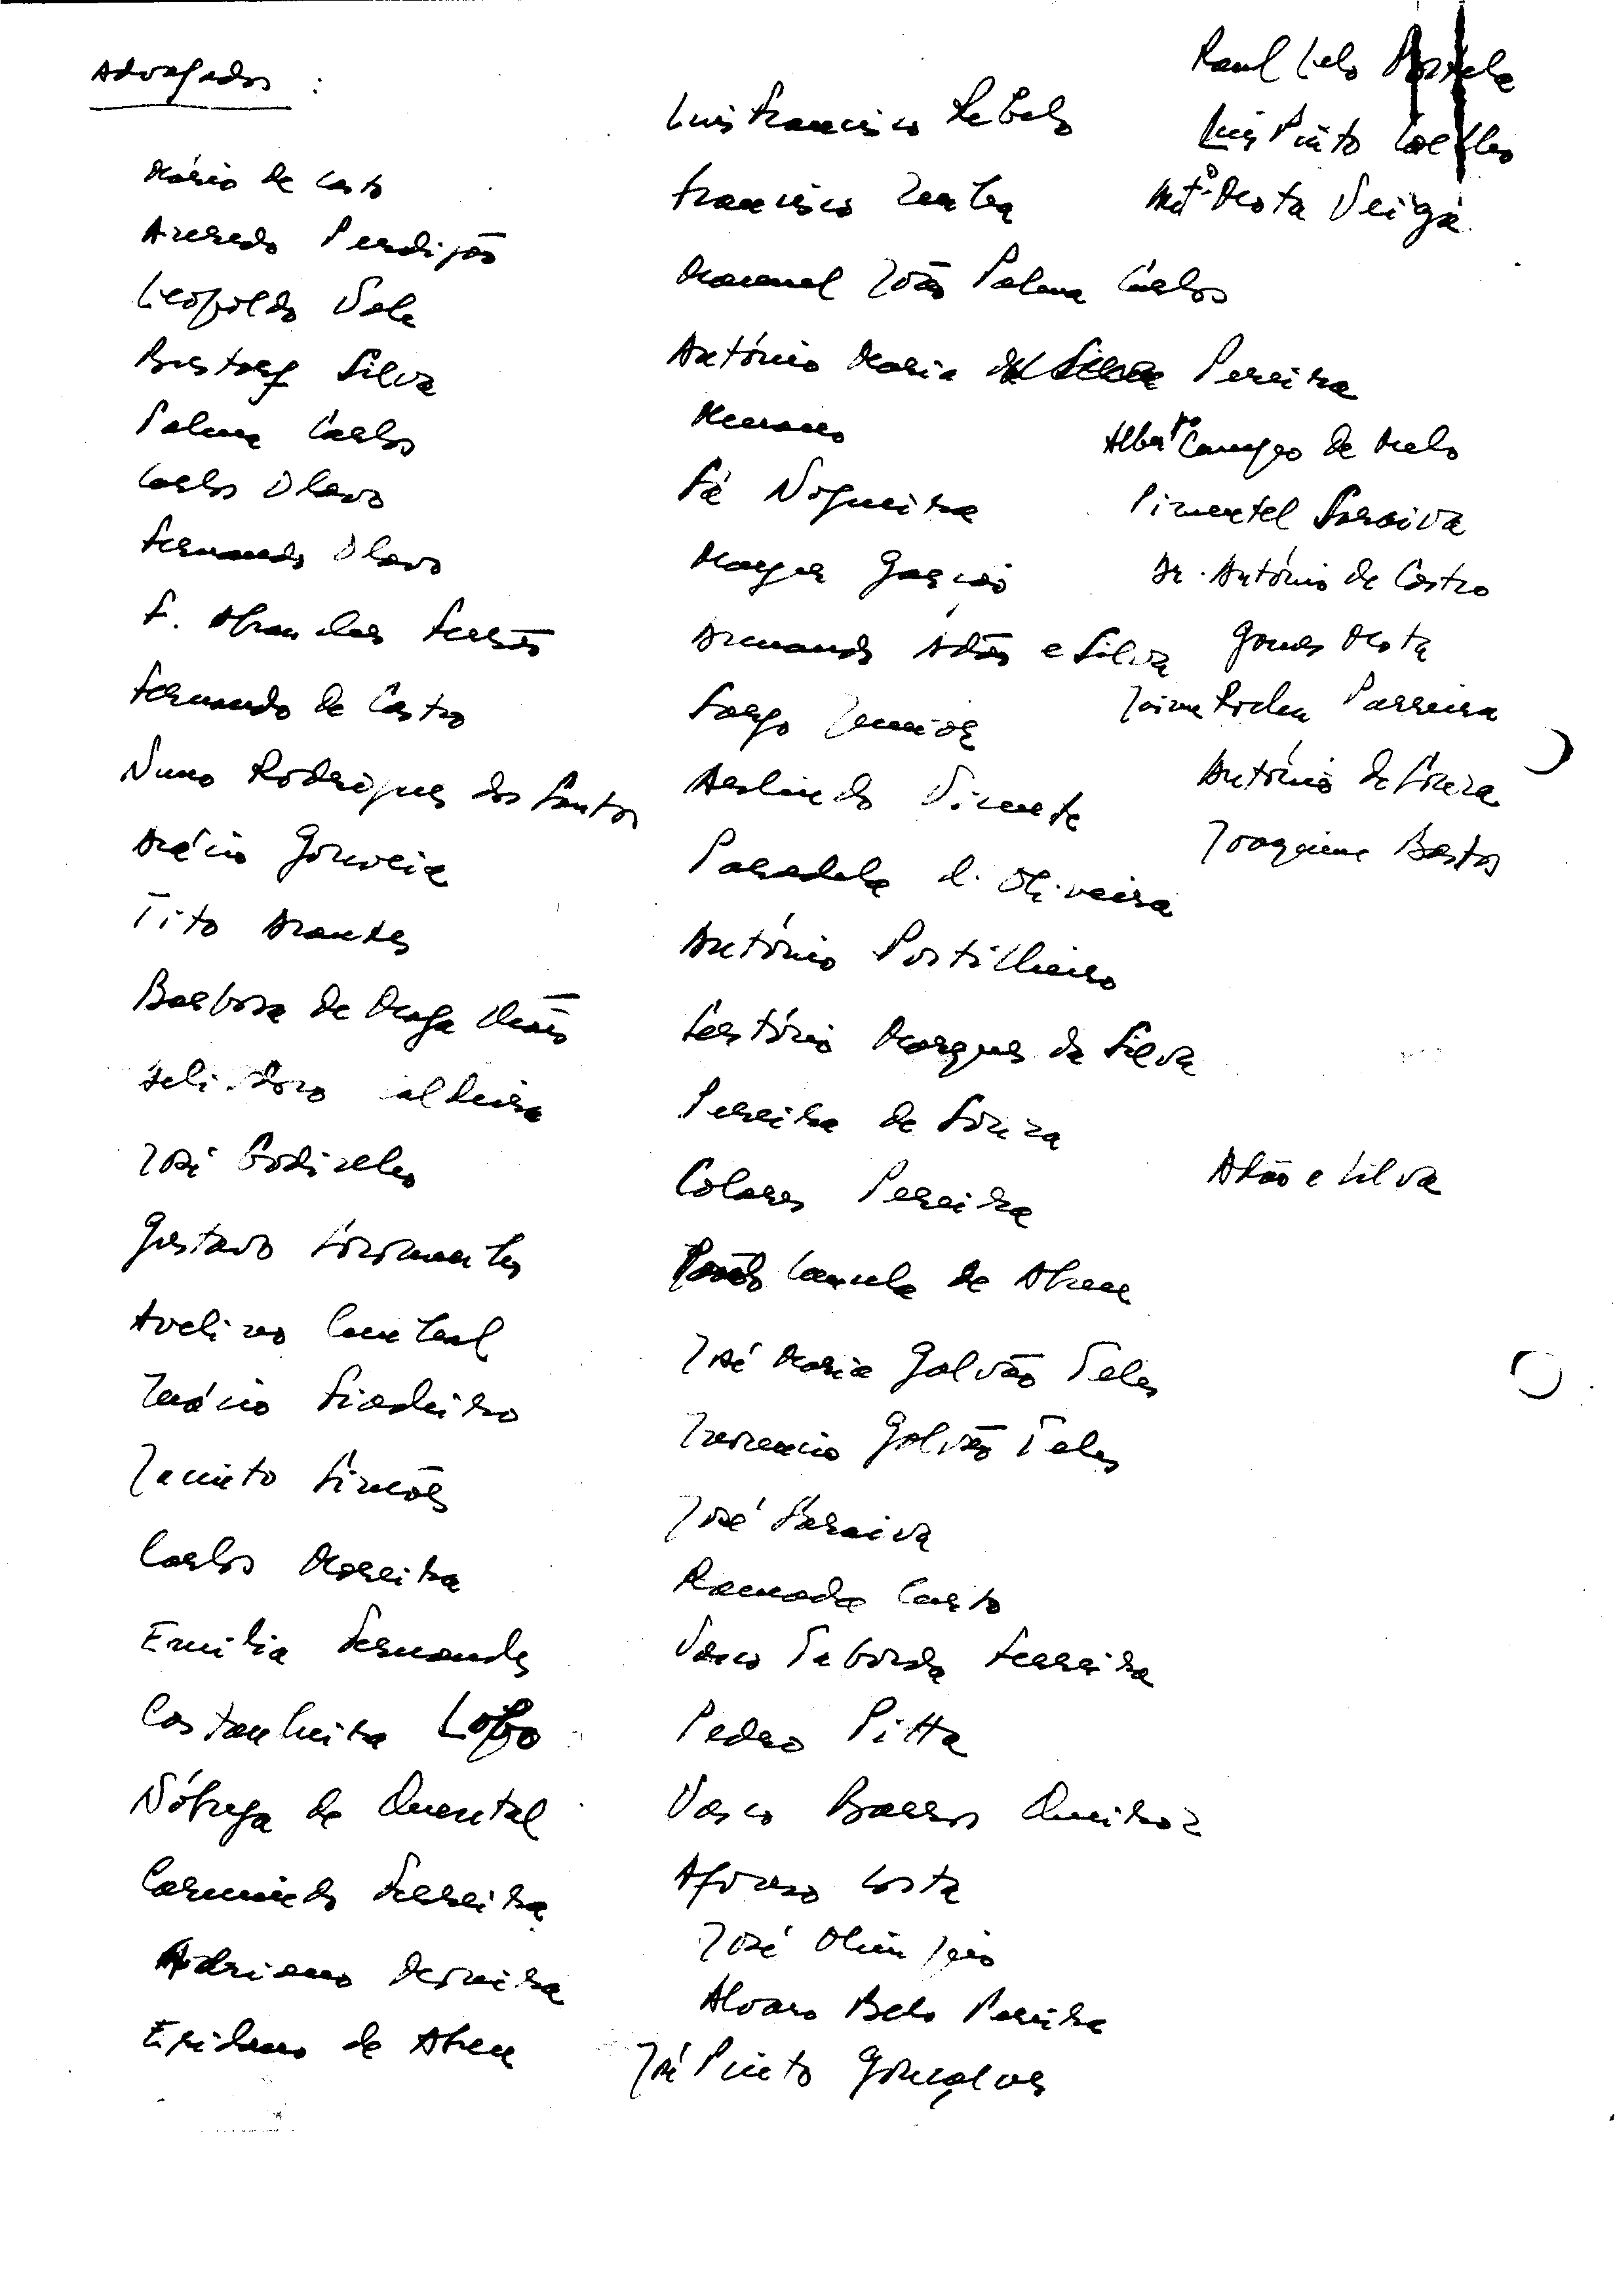 Advogados :
Mário de Castro
Azeredo Perdigão
Leopoldo Vale
Bustorf Silva
Palma Carlos
Carlos Olavo
Fernando Olavo
F. Abranches Ferrão
Fernando de Castro
Nuno Rodrigues dos Santos
Acácio Gouveia
Tito Arantes
Barbosa de Magalhães
Heliodoro Caldeira
José Godinho
Gustavo Soromenho
Avelino Cunhal
Inácio Fiadeiro
Jacinto Simões
Carlos Moreira
Emilia Fernandes
Castanheira Lobo
Nóbrega de Quental
Carmindo Ferreira
Adriano Moreira
de Abreu
Luis Francisco Rebelo
Francisco Zenha
Manuel João Palma Carlos
António Maria Pereira
Sá Nogueira
Mayer Garção
Armando Adão e Silva
Sargo Junior
Arlindo Vicente
Paradela d'Oliveira
António Portilheiro
Sertório Marques da Silva
Pereira de Souza
Colares Pereira
Cancela de Abreu
José Maria Galvão Teles
Inocencio Galvão Teles
José Saraiva
Ramada Curto
Vasco Taborda Ferreira
Pedro Pitta
Vasco Barros Queiroz
Afonso Costa
José Olimpio
Alvaro Belo Pereira
José Pinto Gonçalves
Raul Lelo Portela
Luis Pinto Coelho
Mota Veiga
Albertº Campeo de Melo
Pimentel Saraiva
Dr. António de Castro
Gomes Mota
Parreira
António de Souza
Joaquim Bastos
Adão e Silva